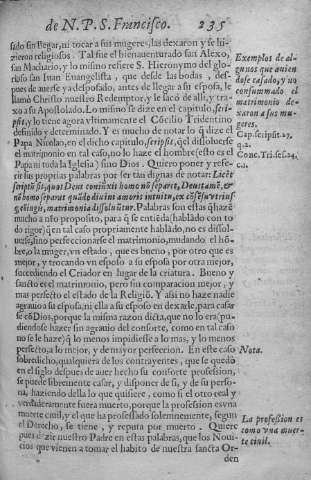 de N. P. S. Francisco. 235
sado sin llegar, ni tocar a sus mugeres, las dexaron y se hi-
zieron religiosos. Tal fue el bienauenturado san Alexo,
san Machario, y lo mismo refiere S. Hieronymo del glo-
rioso san Iuan Euangelista, que desde las bodas, des-
pues de auerse ya desposado, antes de llegar a su esposa, le
llamò Christo nuestro Redemptor, y le sacò de alli, y tra-
xo a su Apostolado. Lo mismo se dize en el capitulo, scri-
psit, y lo tiene agora vltimamente el Cõcilio Tridentino
definido y determinado. Y es mucho de notar lo q̃ dize el
Papa Nicolao, en el dicho capitulo, scripsit, q̃ el dissoluerse
el matrimonio en tal caso, no lo haze el hombre (esto es el
Papa ni toda la Iglesia) sino Dios. Quiero poner y refe-
rir las propias palabras por ser tan dignas de notar: Licèt
scriptũ sit, quos Deus coniunxit homo nõ separet, Deus tamẽ, &
nõ homo separat quãdo diuini amoris intuitu, ex cõsẽsu vtriusq́
matrimonia dissoluũtur. Palabras son estas q̃ hazẽ
mucho a nr̃o proposito, para q̃ se entiẽda (hablãdo con to-
do rigor) q̃ en tal caso propriamente hablãdo, no es dissol-
uerse, sino perfeccionarse el matrimonio, mudando el hõ-
bre, o la muger, vn estado, que es bueno, por otro que es
mejor, y trocando vn esposo a su esposa por otra mejor,
sucediendo el Criador en lugar de la criatura. Bueno y
sancto es el matrimonio, pero sin comparacion mejor, y
mas perfecto el estado de la Religiõ. Y assi no haze nadie
agrauio a su esposa, ni ella a su esposo en dexarle, para casar
se cõ Dios, porque la misma razon dicta, que no lo era (pu-
diendose hazer sin agrauio del consorte, como en tal caso
no se le haze) q̃ lo menos impidiesse a lo mas, y lo menos
perfecto, a lo mejor, y de mayor perfeccion. En este caso
sobredicho, qualquiera de los contrayentes, que se quedò
en el siglo despues de auer hecho su consorte profession,
se puede libremente casar, y disponer de si, y de su perso-
na, haziendo della lo que quisiere, como si el otro real y
verdaderamente fuera muerto, porque la profession es vna
muerte ciuil, y el que ha professado solemnemente, segun
el Derecho, se tiene, y reputa por muerto. Quiere
pues dezir nuestro Padre en estas palabras, que los Noui-
cios que vienen a tomar el habito de nuestra sancta Or-
den
Exemplos de al-
gunos que auien
dose casado, y no
consummado el
matrimonio de-
xaron a sus mu-
geres.
Cap. scripsit. 27.
q. 2.
Conc. Tri. ses. 24.
ca.
Nota.
La profession es
como vna muer-
te ciuil.